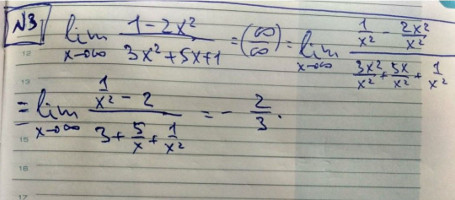 №3 lim x→∞ (1-2x²)/(3x²+5x+1) = (∞/∞) = lim x→∞ (1/x² - 2x²/x²)/(3x²/x² + 5x/x² + 1/x²)
= lim x→∞ (1/x² - 2)/(3 + 5/x + 1/x²) = - 2/3.